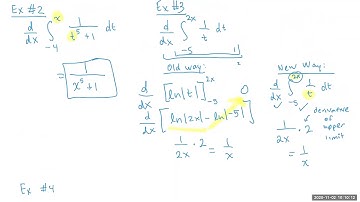 Ex #2
d/dx ∫_{-4}^{x} 1/(t^5+1) dt
= 1/(x^5+1)
Ex #3
d/dx ∫_{-5}^{2x} 1/t dt
-5 1
2
Old way:
d/dx [ln|t|]_{-5}^{2x} 0
d/dx [ln|2x| - ln|-5|]
1/2x · 2 = 1/x
New Way:
d/dx ∫_{-5}^{2x} 1/t dt
1/2x · 2 derivative of upper limit
= 1/x
Ex #4